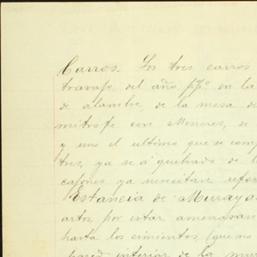 Carros. Los tres carros
travajo del año ppº en la
de alambre, de la mesa de
mitrofe con Menes, se
y uno el ultimo que se com
tro, ya se a quebrado de l
cajones ya necesitan refor
Estancia de Murray a
artos por estar amenazan
hasta los cimientos (que no
pared interior de la mu